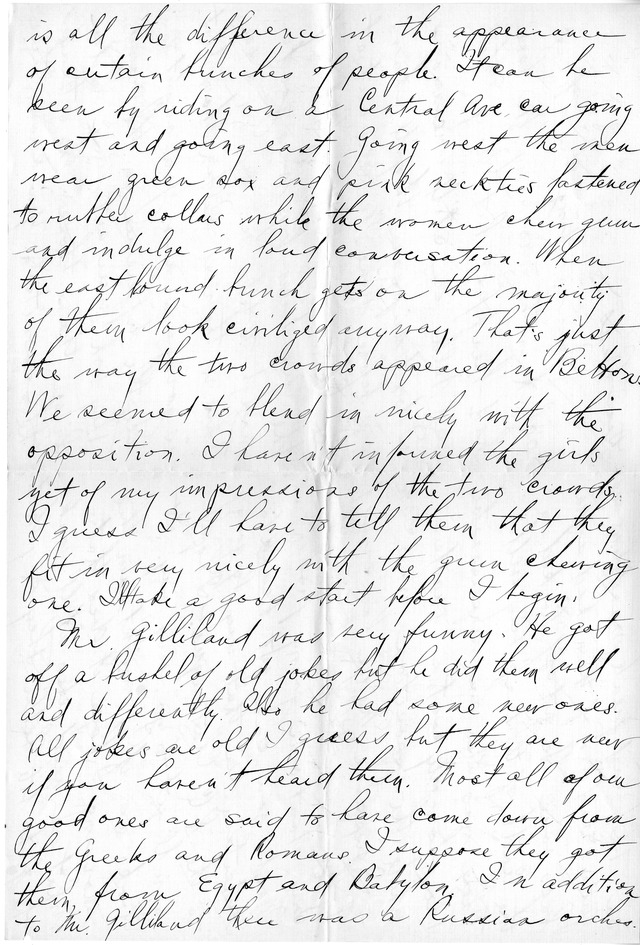 is all the difference in the appearance
of certain bunches of people. It can be
seen by riding on a Central Ave. car going
west and going east. Going west the men
wear green sox and pink neckties fastened
to rubber collars while the women chew gum
and indulge in loud conversation. When
the eastbound bunch gets on the majority
of them look civilized anyway. That's just
the way the two crowds appeared in
We seemed to blend in nicely with the
opposition. I haven't informed the girls
yet of my impressions of the two crowds.
I guess I'll have to tell them that they
fit in very nicely with the gum chewing
one. I'll take a good start before I begin.
Mr. Gilliland was very funny. He got
off a bushel of old jokes but he did them well
and differently. Also he had some new ones.
All jokes are old I guess but they are new
if you haven't heard them. Most all of our
good ones are said to have come down from
the Greeks and Romans. I suppose they got
them from Egypt and Babylon. In addition
to Mr. Gilliland there was a Russian orches-